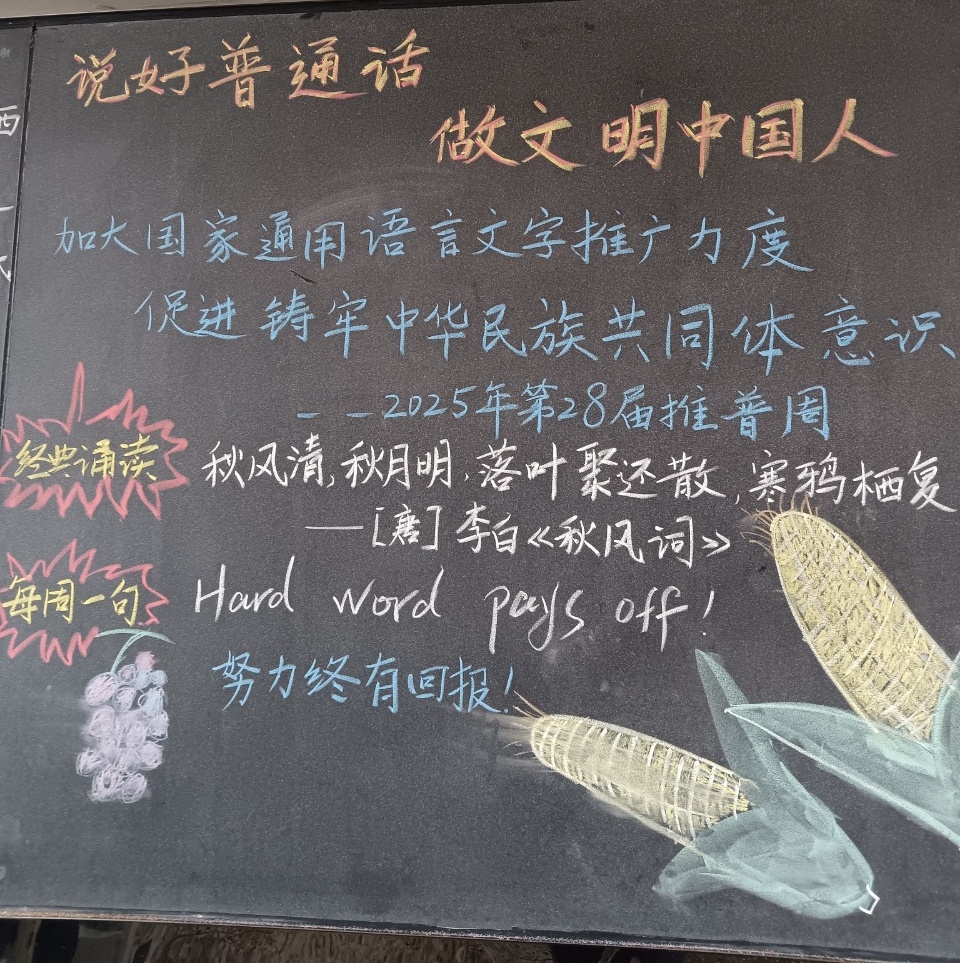 说好普通话
做文明中国人
加大国家通用语言文字推广力度
促进铸牢中华民族共同体意识
——2025年第28届推普周
经典诵读
秋风清,秋月明,落叶聚还散,寒鸦栖复
——[唐]李白《秋风词》
每周一句
Hard word pays off!
努力终有回报!
西